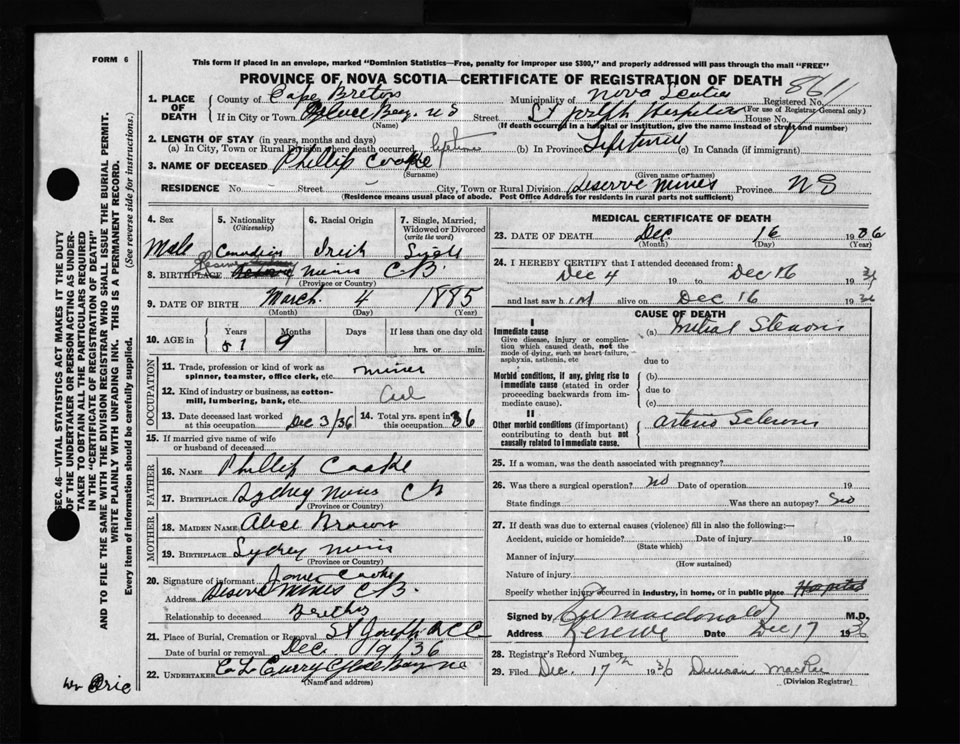 FORM 6
This form if placed in an envelope, marked "Dominion Statistics—Free, penalty for improper use $300," and properly addressed will pass through the mail "FREE"
PROVINCE OF NOVA SCOTIA—CERTIFICATE OF REGISTRATION OF DEATH
8611
1. PLACE OF DEATH
County of Cape Breton Municipality of Nova Scotia Registered No.
(For use of Registrar-General only)
If in City or Town Glace Bay, N S Street St Joseph Hospital House No.
(Name) (If death occurred in a hospital or institution, give the name instead of street and number)
2. LENGTH OF STAY (in years, months and days)
(a) In City, Town or Rural Division where death occurred lifetime (b) In Province Lifetime (c) In Canada (if immigrant)
3. NAME OF DECEASED Phillip Cooke
(Surname) (Given name or names)
RESIDENCE No. Street City, Town or Rural Division Reserve Mines Province N S
(Residence means usual place of abode. Post Office Address for residents in rural parts not sufficient)
4. Sex Male
5. Nationality (Citizenship) Canadian
6. Racial Origin Irish
7. Single, Married, Widowed or Divorced (write the word) Single
8. BIRTHPLACE Mines C B.
(Province or Country)
9. DATE OF BIRTH March 4 1885
(Month) (Day) (Year)
10. AGE in Years Months Days If less than one day old
51 9 hrs. or min.
OCCUPATION
11. Trade, profession or kind of work as spinner, teamster, office clerk, etc. miner
12. Kind of industry or business, as cotton-mill, lumbering, bank, etc.
13. Date deceased last worked at this occupation Dec 3/36
14. Total yrs. spent in this occupation 36
15. If married give name of wife or husband of deceased
FATHER
16. NAME Phillip Cooke
17. BIRTHPLACE Sydney Mines C B
(Province or Country)
MOTHER
18. MAIDEN NAME Alice Brown
19. BIRTHPLACE Sydney Mines
(Province or Country)
20. Signature of informant James Cooke
Address Reserve Mines C B.
Relationship to deceased Brother
21. Place of Burial, Cremation or Removal St Joseph
Date of burial or removal Dec 19/36
22. UNDERTAKER C L Curry Glace Bay
(Name and address)
MEDICAL CERTIFICATE OF DEATH
23. DATE OF DEATH Dec 16 1936
(Month) (Day) (Year)
24. I HEREBY CERTIFY that I attended deceased from:
Dec 4 19 to Dec 16 1936
and last saw him alive on Dec 16 1936
CAUSE OF DEATH
I
Immediate cause (a) Mitral Stenosis
Give disease, injury or complication which caused death, not the mode of dying, such as heart-failure, asphyxia, asthenia, etc
due to
Morbid conditions, if any, giving rise to immediate cause (stated in order proceeding backwards from immediate cause).
(b)
due to
(c)
II
Other morbid conditions (if important) contributing to death but not causally related to immediate cause.
Arterio Sclerosis
25. If a woman, was the death associated with pregnancy?
26. Was there a surgical operation? No Date of operation 19
State findings Was there an autopsy? No
27. If death was due to external causes (violence) fill in also the following:—
Accident, suicide or homicide? Date of injury 19
(State which)
Manner of injury
(How sustained)
Nature of injury
Specify whether injury occurred in industry, in home, or in public place Hospital
Signed by Macdonald M.D.
Address Reserve Date Dec 17 1936
28. Registrar's Record Number
29. Filed Dec. 17th 1936 Duncan MacRae
(Division Registrar)
SEC. 46—VITAL STATISTICS ACT MAKES IT THE DUTY OF THE UNDERTAKER OR PERSON ACTING AS UNDERTAKER TO OBTAIN ALL THE PARTICULARS REQUIRED IN THE "CERTIFICATE OF REGISTRATION OF DEATH" AND TO FILE THE SAME WITH THE DIVISION REGISTRAR WHO SHALL ISSUE THE BURIAL PERMIT.
WRITE PLAINLY WITH UNFADING INK. THIS IS A PERMANENT RECORD.
Every item of Information should be carefully supplied. (See reverse side for instructions.)